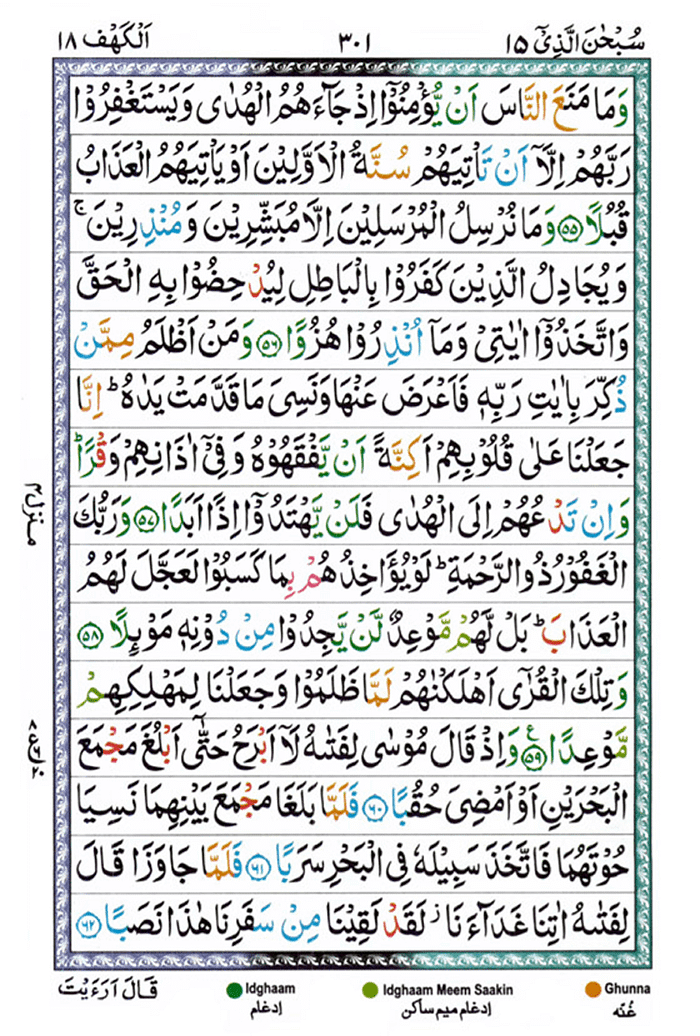 سُبْحٰنَ الَّذِیْۤ ۱۵
۳۰۱
اَلْكَهْف ۱۸
وَمَا مَنَعَ النَّاسَ اَنْ یُّؤْمِنُوْۤا اِذْ جَآءَهُمُ الْهُدٰى وَیَسْتَغْفِرُوْا
رَبَّهُمْ اِلَّاۤ اَنْ تَاْتِیَهُمْ سُنَّةُ الْاَوَّلِیْنَ اَوْ یَاْتِیَهُمُ الْعَذَابُ
قُبُلًا ۵۵ وَمَا نُرْسِلُ الْمُرْسَلِیْنَ اِلَّا مُبَشِّرِیْنَ وَمُنْذِرِیْنَ ۚ
وَیُجَادِلُ الَّذِیْنَ كَفَرُوْا بِالْبَاطِلِ لِیُدْحِضُوْا بِهِ الْحَقَّ
وَاتَّخَذُوْۤا اٰیٰتِیْ وَمَاۤ اُنْذِرُوْا هُزُوًا ۵۶ وَمَنْ اَظْلَمُ مِمَّنْ
ذُكِّرَ بِاٰیٰتِ رَبِّهٖ فَاَعْرَضَ عَنْهَا وَنَسِیَ مَا قَدَّمَتْ یَدٰهُ ؕ اِنَّا
جَعَلْنَا عَلٰى قُلُوْبِهِمْ اَكِنَّةً اَنْ یَّفْقَهُوْهُ وَفِیْۤ اٰذَانِهِمْ وَقْرًا ؕ
وَاِنْ تَدْعُهُمْ اِلَى الْهُدٰى فَلَنْ یَّهْتَدُوْۤا اِذًا اَبَدًا ۵۷ وَرَبُّكَ
الْغَفُوْرُ ذُو الرَّحْمَةِ ؕ لَوْ یُؤَاخِذُهُمْ بِمَا كَسَبُوْا لَعَجَّلَ لَهُمُ
الْعَذَابَ ؕ بَلْ لَّهُمْ مَّوْعِدٌ لَّنْ یَّجِدُوْا مِنْ دُوْنِهٖ مَوْىِٕلًا ۵۸
وَتِلْكَ الْقُرٰۤى اَهْلَكْنٰهُمْ لَمَّا ظَلَمُوْا وَجَعَلْنَا لِمَهْلِكِهِمْ
مَّوْعِدًا ۵۹ ع وَاِذْ قَالَ مُوْسٰى لِفَتٰىهُ لَاۤ اَبْرَحُ حَتّٰۤى اَبْلُغَ مَجْمَعَ
الْبَحْرَیْنِ اَوْ اَمْضِیَ حُقُبًا ۶۰ فَلَمَّا بَلَغَا مَجْمَعَ بَیْنِهِمَا نَسِیَا
حُوْتَهُمَا فَاتَّخَذَ سَبِیْلَهٗ فِی الْبَحْرِ سَرَبًا ۶۱ فَلَمَّا جَاوَزَا قَالَ
لِفَتٰىهُ اٰتِنَا غَدَآءَنَا ؗ لَقَدْ لَقِیْنَا مِنْ سَفَرِنَا هٰذَا نَصَبًا ۶۲
منزل ۴
قَالَ اَرَءَیْتَ
Idghaam
ادغام
Idghaam Meem Saakin
ادغام میم ساکن
Ghunna
غُنّه